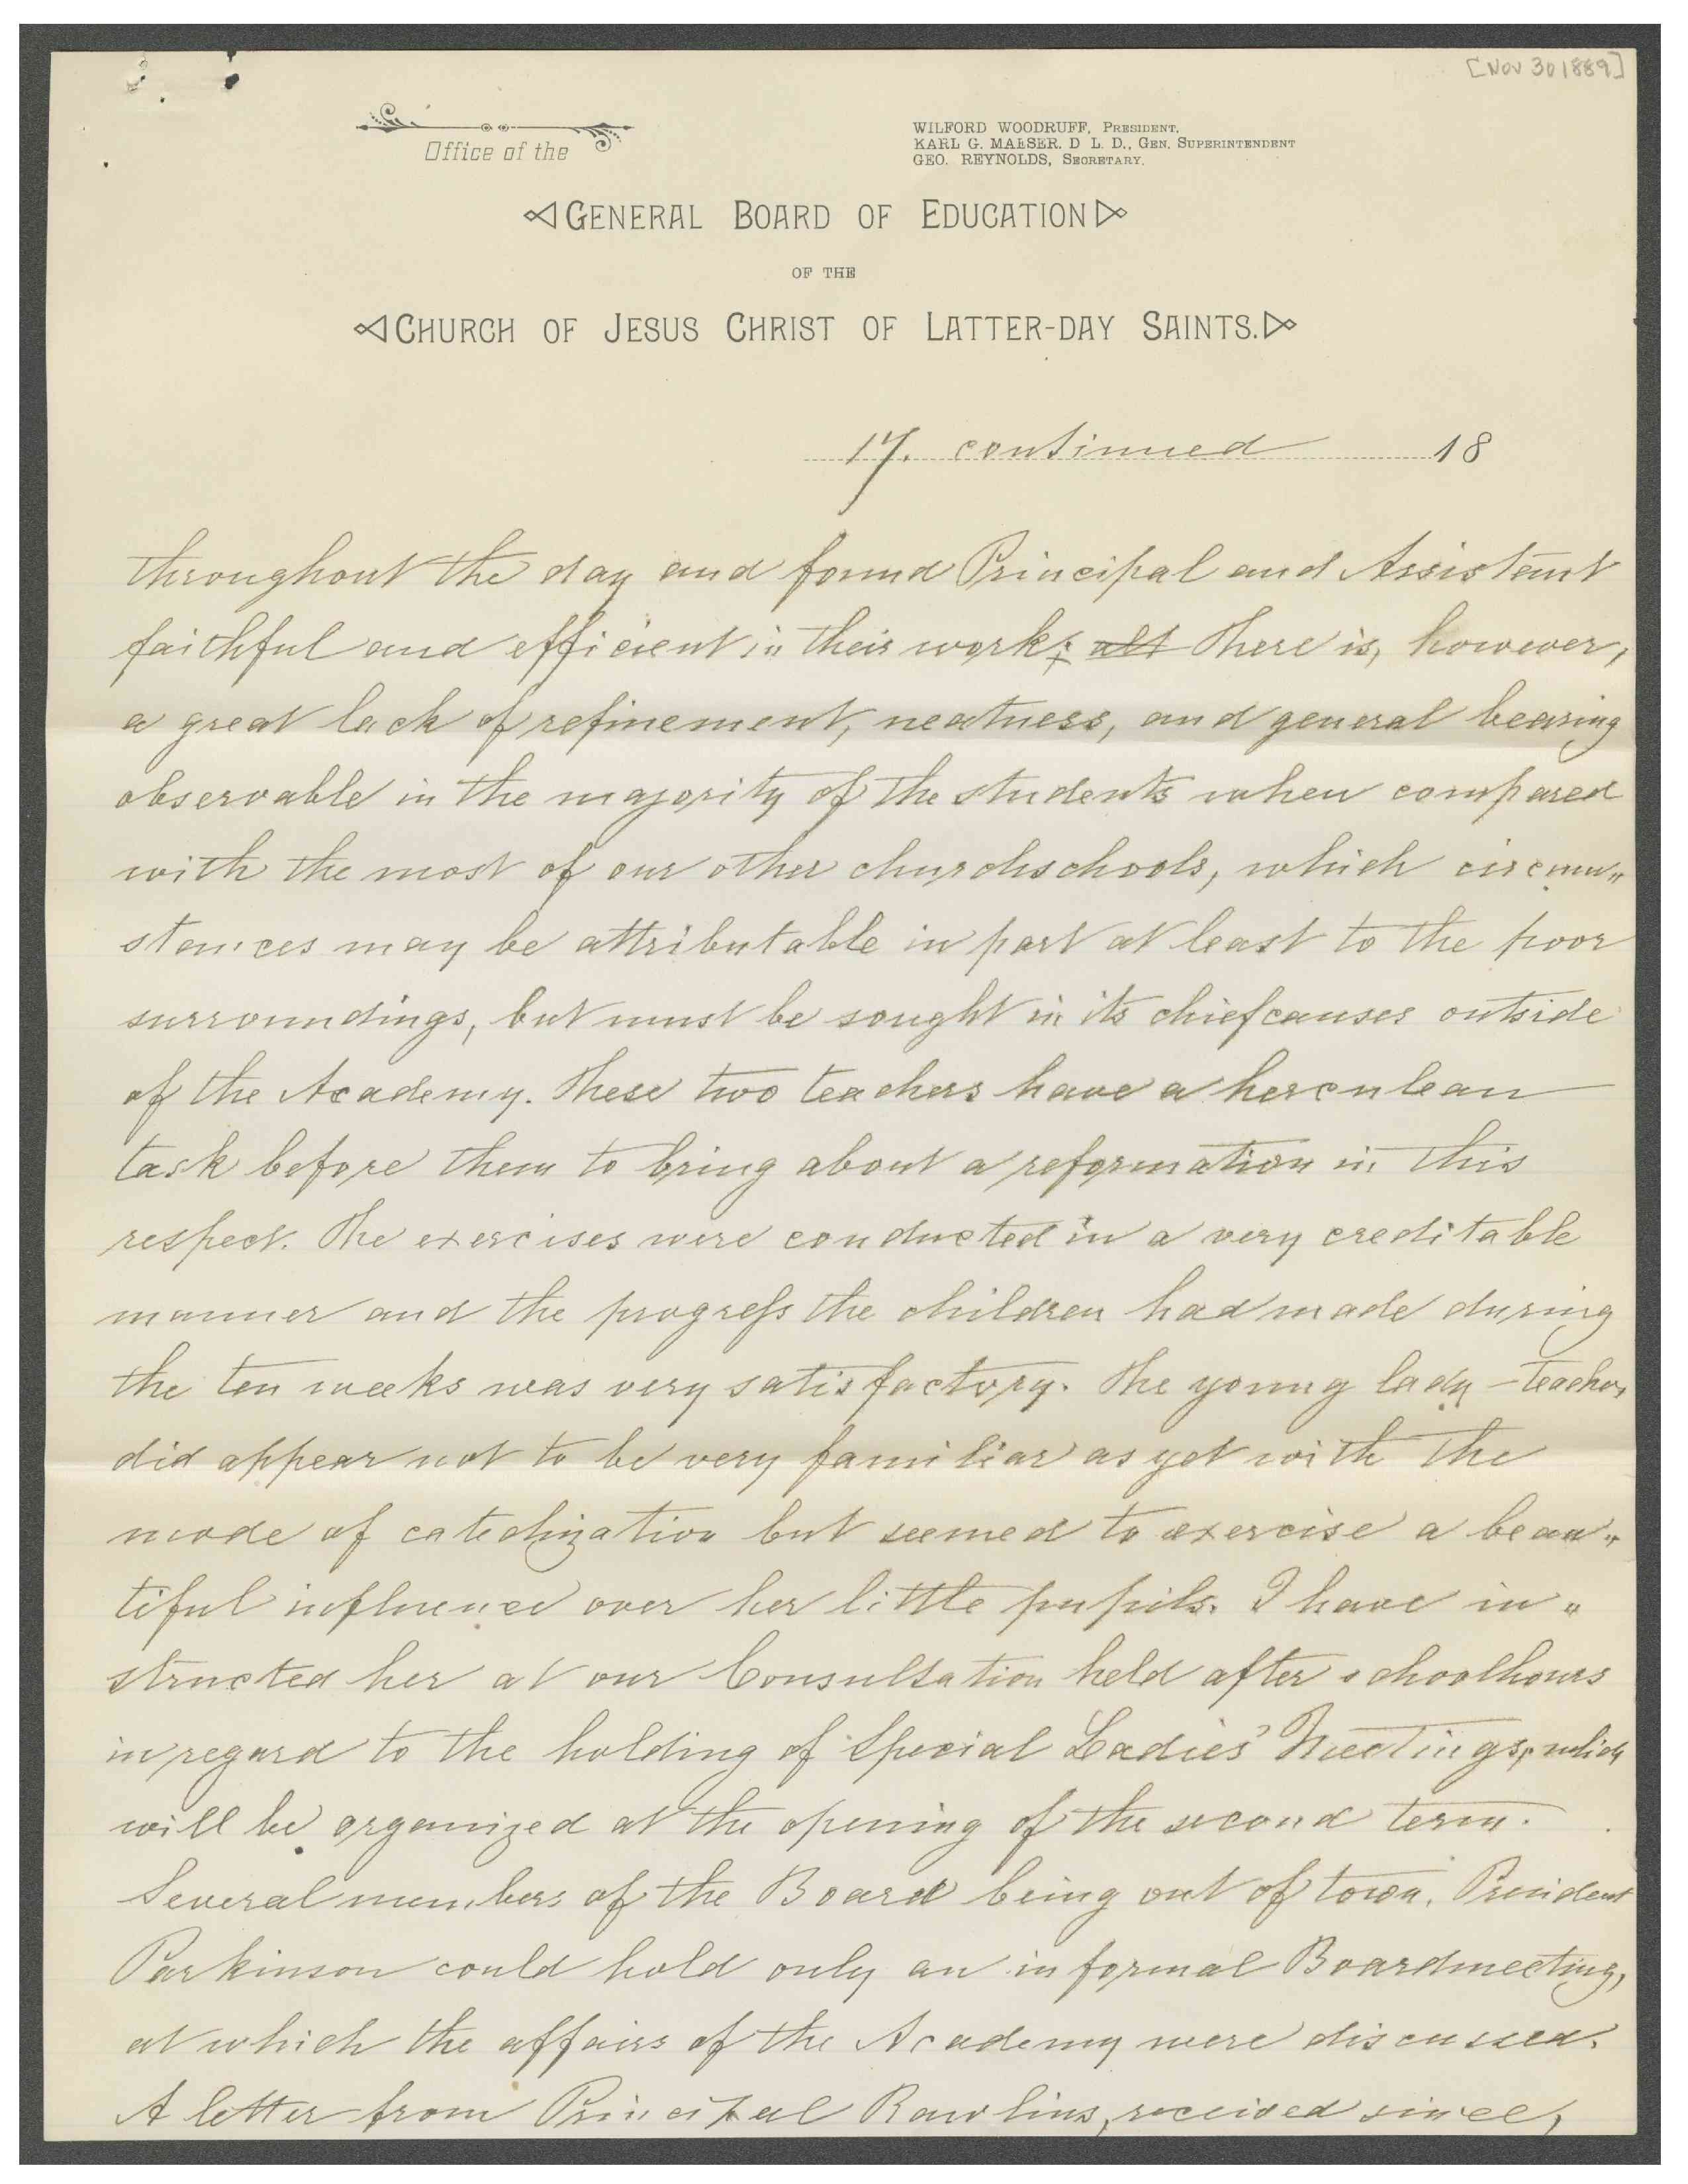 [NOV 30 1889]
Office of the
WILFORD WOODRUFF, PRESIDENT.
KARL G. MAESER. D L. D., GEN. SUPERINTENDENT
GEO. REYNOLDS, SECRETARY.
GENERAL BOARD OF EDUCATION
OF THE
CHURCH OF JESUS CHRIST OF LATTER-DAY SAINTS.
17. continued 18
throughout the day and found Principal and Assistant
faithful and efficient in their work; alt There is, however,
a great lack of refinement, neatness, and general bearing
observable in the majority of the students when compared
with the most of our other churchschools, which circum„
stances may be attributable in part at least to the poor
surroundings, but must be sought in its chiefcauses outside
of the Academy. These two teachers have a herculean
task before them to bring about a reformation in this
respect. The exercises were conducted in a very creditable
manner and the progress the children had made during
the ten weeks was very satisfactory. The young lady-teacher
did appear not to be very familiar as yet with the
mode of catechization but seemed to exercise a beau„
tiful influence over her little pupils. I have in„
structed her at our Consultation held after schoolhours
in regard to the holding of Special Ladies' Meetings, which
will be organized at the opening of the second term.
Several members of the Board being out of town, President
Parkinson could hold only an informal Boardmeeting,
at which the affairs of the Academy were discussed.
A letter from Principal Rawlins, received since,